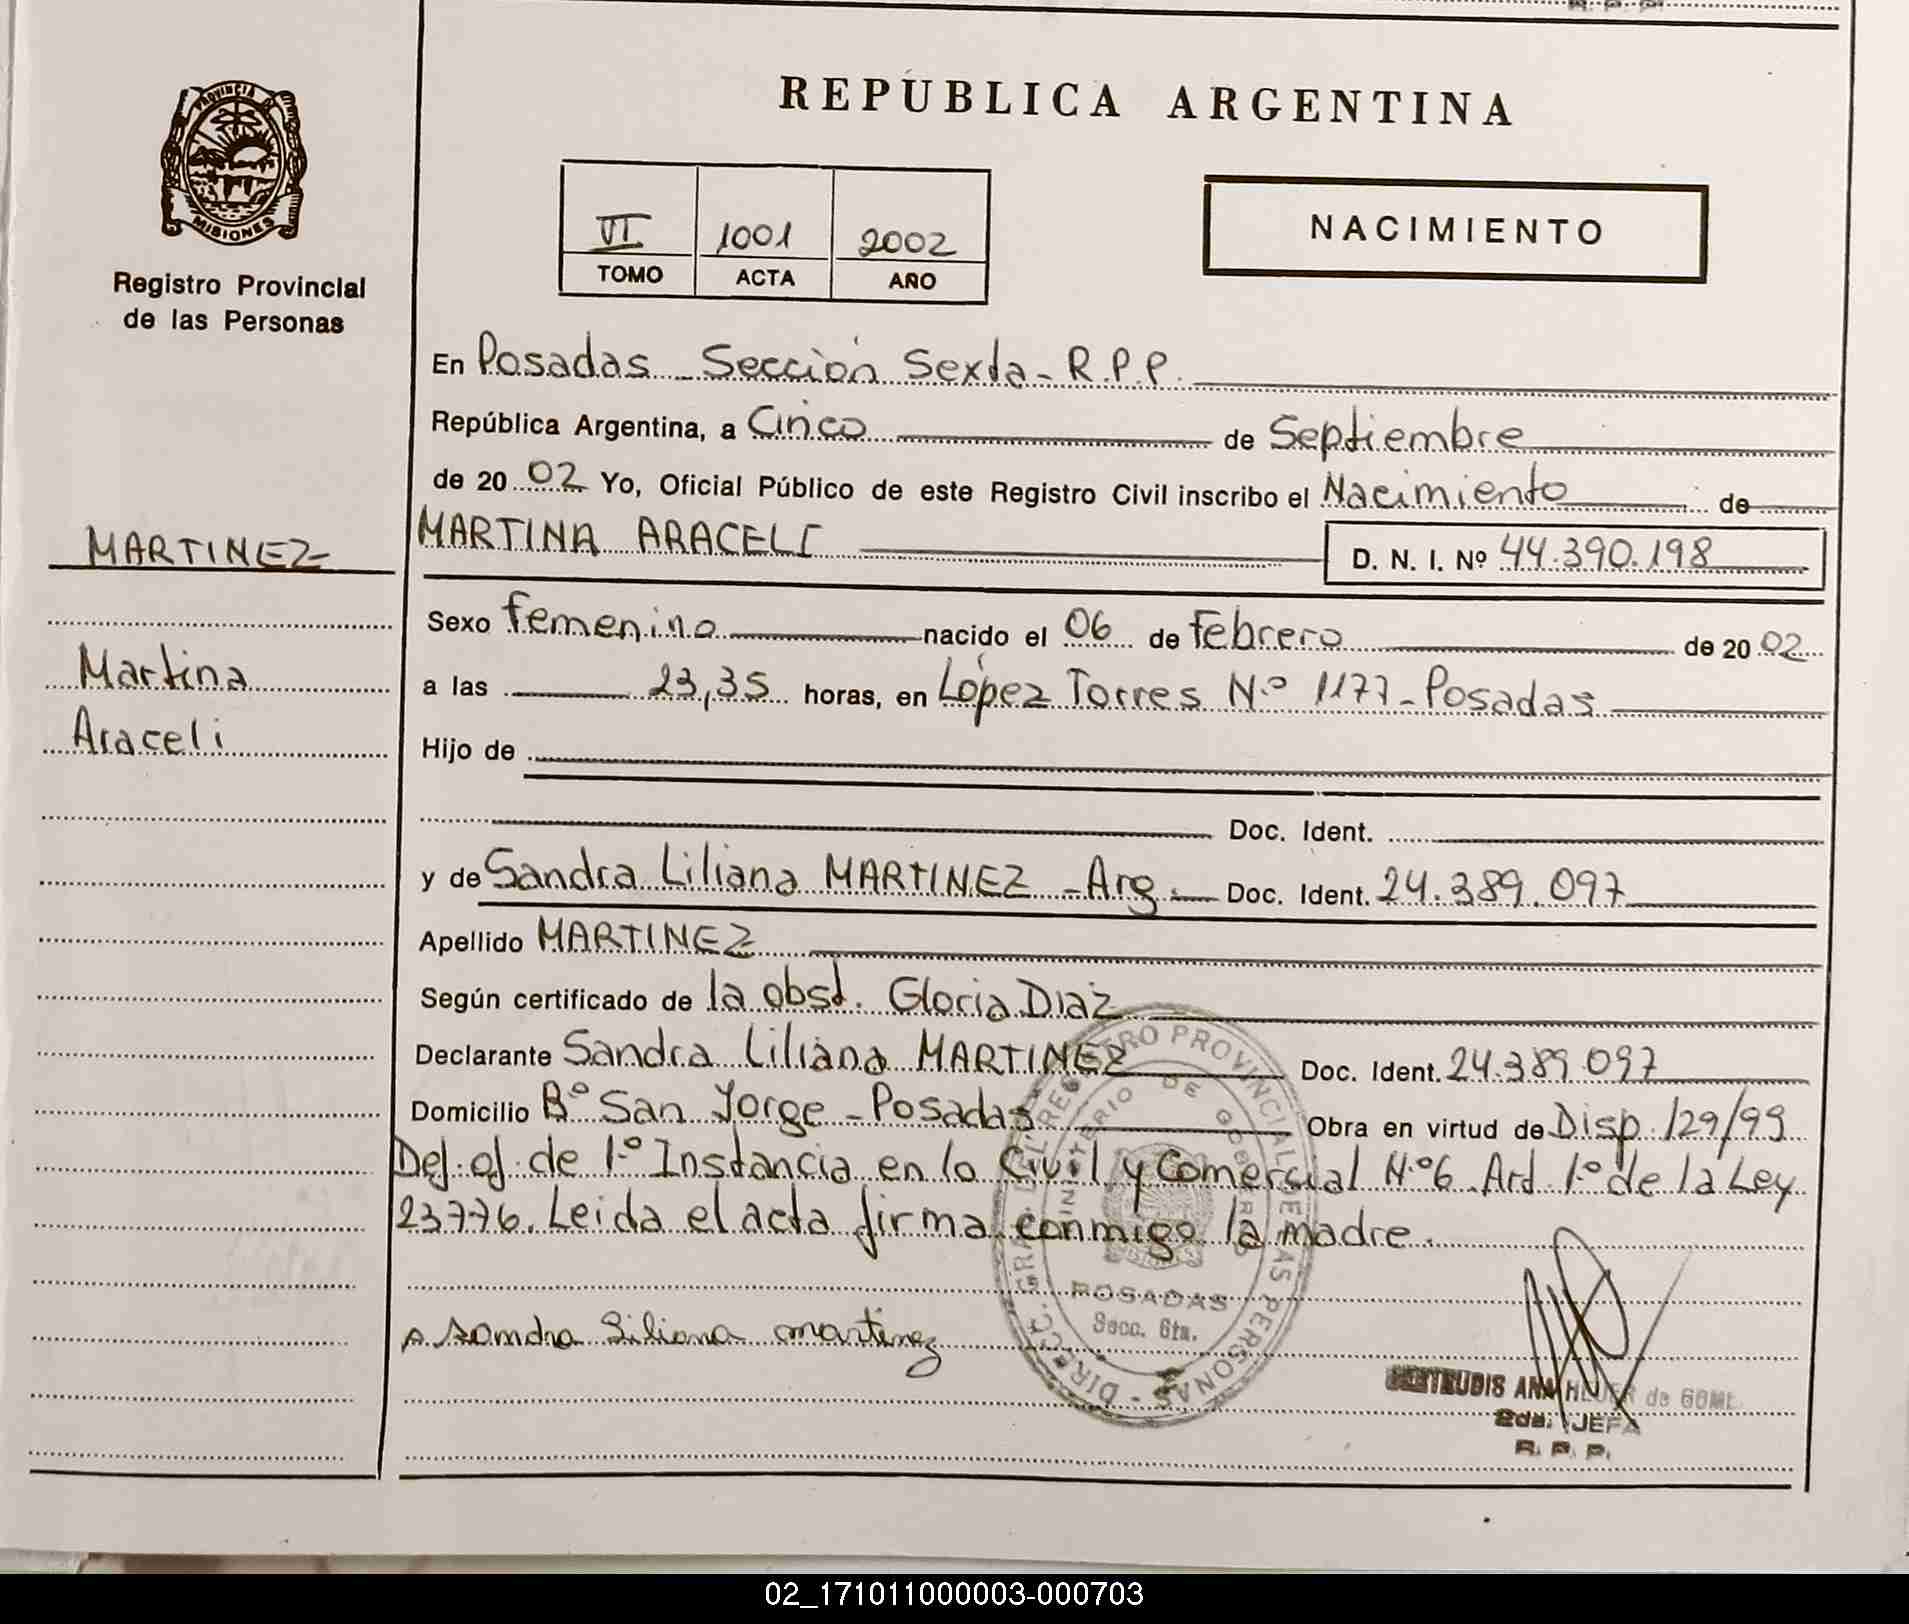 REPÚBLICA ARGENTINA
PROVINCIA DE
MISIONES
Registro Provincial
de las Personas
VI 1001 2002
TOMO ACTA AÑO
NACIMIENTO
En Posadas - Sección Sexta - R.P.P.
República Argentina, a Cinco de Septiembre
de 20 02 Yo, Oficial Público de este Registro Civil inscribo el Nacimiento de
MARTINEZ
MARTINA ARACELI D. N. I. Nº 44.390.198
Sexo Femenino nacido el 06 de Febrero de 20 02
Martina
a las 23,35 horas, en López Torres N.º 1177 - Posadas
Araceli
Hijo de
Doc. Ident.
y de Sandra Liliana MARTINEZ - Arg. - Doc. Ident. 24.389.097
Apellido MARTINEZ
Según certificado de la obst. Gloria Diaz
Declarante Sandra Liliana MARTINEZ Doc. Ident. 24.389.097
Domicilio Bº San Jorge - Posadas Obra en virtud de Disp. 129/99
Def. of. de 1.º Instancia en lo Civil y Comercial N.º 6. Art. 1.º de la Ley
23776. Leida el acta firma conmigo la madre.
DIRECC. GRAL. DEL REGISTRO PROVINCIAL DE LAS PERSONAS
MINISTERIO DE GOBIERNO
POSADAS
Secc. 6ta.
Sandra Liliana martinez
GERTRUDIS ANA de
2da. JEFA
R. P. P.
02_171011000003-000703